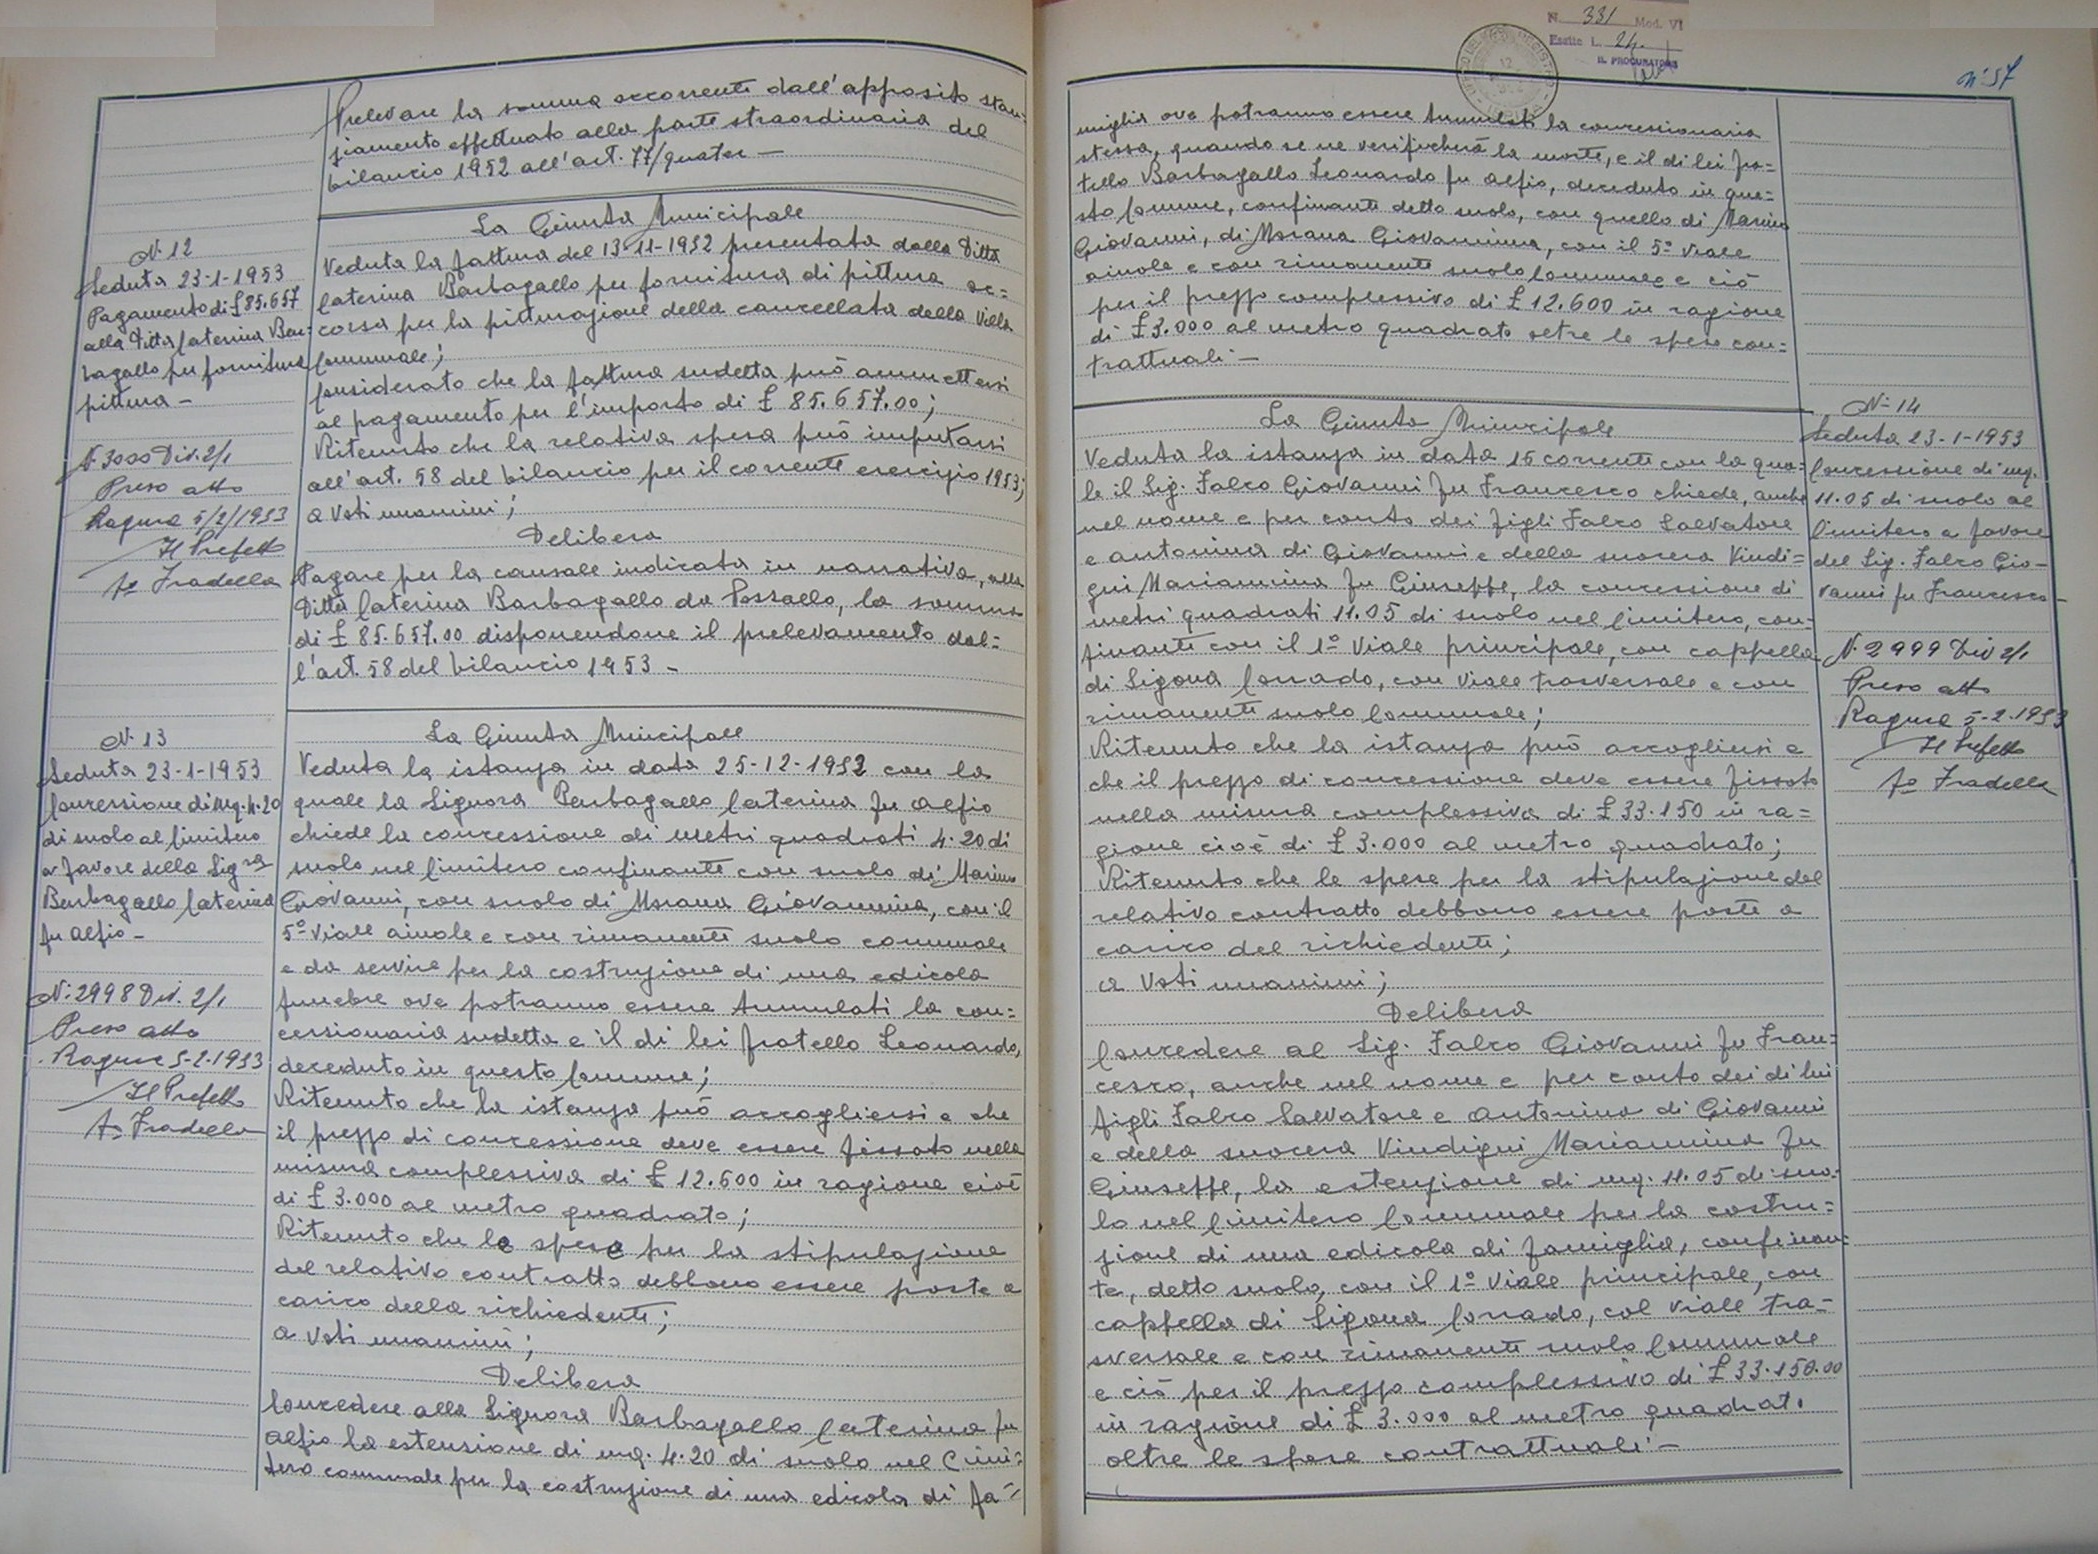 Prelevare la somma occorrente dall'apposito stan-
ziamento effettuato alla parte straordinaria del
bilancio 1952 all'art. 77/quater —
N. 12
Seduta 23-1-1953
Pagamento di £ 85.657
alla Ditta Caterina Bar-
bagallo per fornitura
pittura -
N. 3000 Div. 2/1
Preso atto
Ragusa 5/2/1953
Il Prefetto
Fo Fradella
La Giunta Municipale
Veduta la fattura del 13-11-1952 presentata dalla Ditta
Caterina Barbagallo per fornitura di pittura oc=
corsa per la pitturazione della cancellata della Villa
Comunale;
Considerato che la fattura sudetta può ammettersi
al pagamento per l'importo di £ 85.657.00;
Ritenuto che la relativa spesa può imputarsi
all'art. 58 del bilancio per il corrente esercizio 1953;
a voti unanimi;
Delibera
Pagare per la causale indicata in narrativa, alla
Ditta Caterina Barbagallo da Possallo, la somma
di £ 85.657.00 disponendone il prelevamento dal=
l'art. 58 del bilancio 1953 -
N. 13
Seduta 23-1-1953
Concessione di mq. 4.20
di suolo al Cimitero
a favore della Sig.ra
Barbagallo Caterina
fu Alfio -
N. 2998 Div. 2/1
Preso atto
Ragusa 5-2-1953
Il Prefetto
Fo Fradella
La Giunta Municipale
Veduta la istanza in data 25-12-1952 con la
quale la Signora Barbagallo Caterina fu Alfio
chiede la concessione di metri quadrati 4.20 di
suolo nel Cimitero confinante con suolo di Marino
Giovanni, con suolo di Morana Giovannina, con il
5° viale aiuole e con rimanente suolo comunale
e da servire per la costruzione di una edicola
funebre ove potranno essere tumulati la con=
cessionaria sudetta e il di lei fratello Leonardo,
deceduto in questo Comune;
Ritenuto che la istanza può accogliersi e che
il prezzo di concessione deve essere fissato nella
misura complessiva di £ 12.600 in ragione cioè
di £ 3.000 al metro quadrato;
Ritenuto che le spese per la stipulazione
del relativo contratto debbono essere poste a
carico della richiedente;
a voti unanimi;
Delibera
Concedere alla Signora Barbagallo Caterina fu
Alfio la estensione di mq. 4.20 di suolo nel Cimi=
tero comunale per la costruzione di una edicola di fa=
N. 331 Mod. VI
Esatte L. 24.
IL PROCURATORE
N° 57
miglia ove potranno essere tumulati la concessionaria
stessa, quando se ne verificherà la morte, e il di lei fra-
tello Barbagallo Leonardo fu Alfio, deceduto in que=
sto Comune, confinante detto suolo, con quello di Marino
Giovanni, di Morana Giovannina, con il 5° viale
aiuole e con rimanente suolo Comunale e ciò
per il prezzo complessivo di £ 12.600 in ragione
di £ 3.000 al metro quadrato oltre le spese con=
trattuali -
La Giunta Municipale
Veduta la istanza in data 15 corrente con la qua=
le il Sig. Falco Giovanni fu Francesco chiede, anche
nel nome e per conto dei figli Falco Salvatore
e Antonina di Giovanni e della suocera Vindi=
gni Mariannina fu Giuseppe, la concessione di
metri quadrati 11.05 di suolo nel Cimitero, con=
finante con il 1° viale principale, con cappella
di Sigona Corrado, con viale trasversale e con
rimanente suolo Comunale;
Ritenuto che la istanza può accogliersi e
che il prezzo di concessione deve essere fissato
nella misura complessiva di £ 33.150 in ra=
gione cioè di £ 3.000 al metro quadrato;
Ritenuto che le spese per la stipulazione del
relativo contratto debbono essere poste a
carico del richiedente;
a voti unanimi;
Delibera
Concedere al Sig. Falco Giovanni fu Fran=
cesco, anche nel nome e per conto dei di lui
figli Falco Salvatore e Antonina di Giovanni
e della suocera Vindigni Mariannina fu
Giuseppe, la estenzione di mq. 11.05 di suo=
lo nel Cimitero Comunale per la costru=
zione di una edicola di famiglia, confinan=
te, detto suolo, con il 1° viale principale, con
cappella di Sigona Corrado, col viale tra=
sversale e con rimanente suolo Comunale
e ciò per il prezzo complessivo di £ 33.150.00
in ragione di £ 3.000 al metro quadrato
oltre le spese contrattuali -
N. 14
Seduta 23-1-1953
Concessione di mq.
11.05 di suolo al
Cimitero a favore
del Sig. Falco Gio-
vanni fu Francesco -
N. 2999 Div 2/1
Preso atto
Ragusa 5-2-1953
Il Prefetto
Fo Fradella